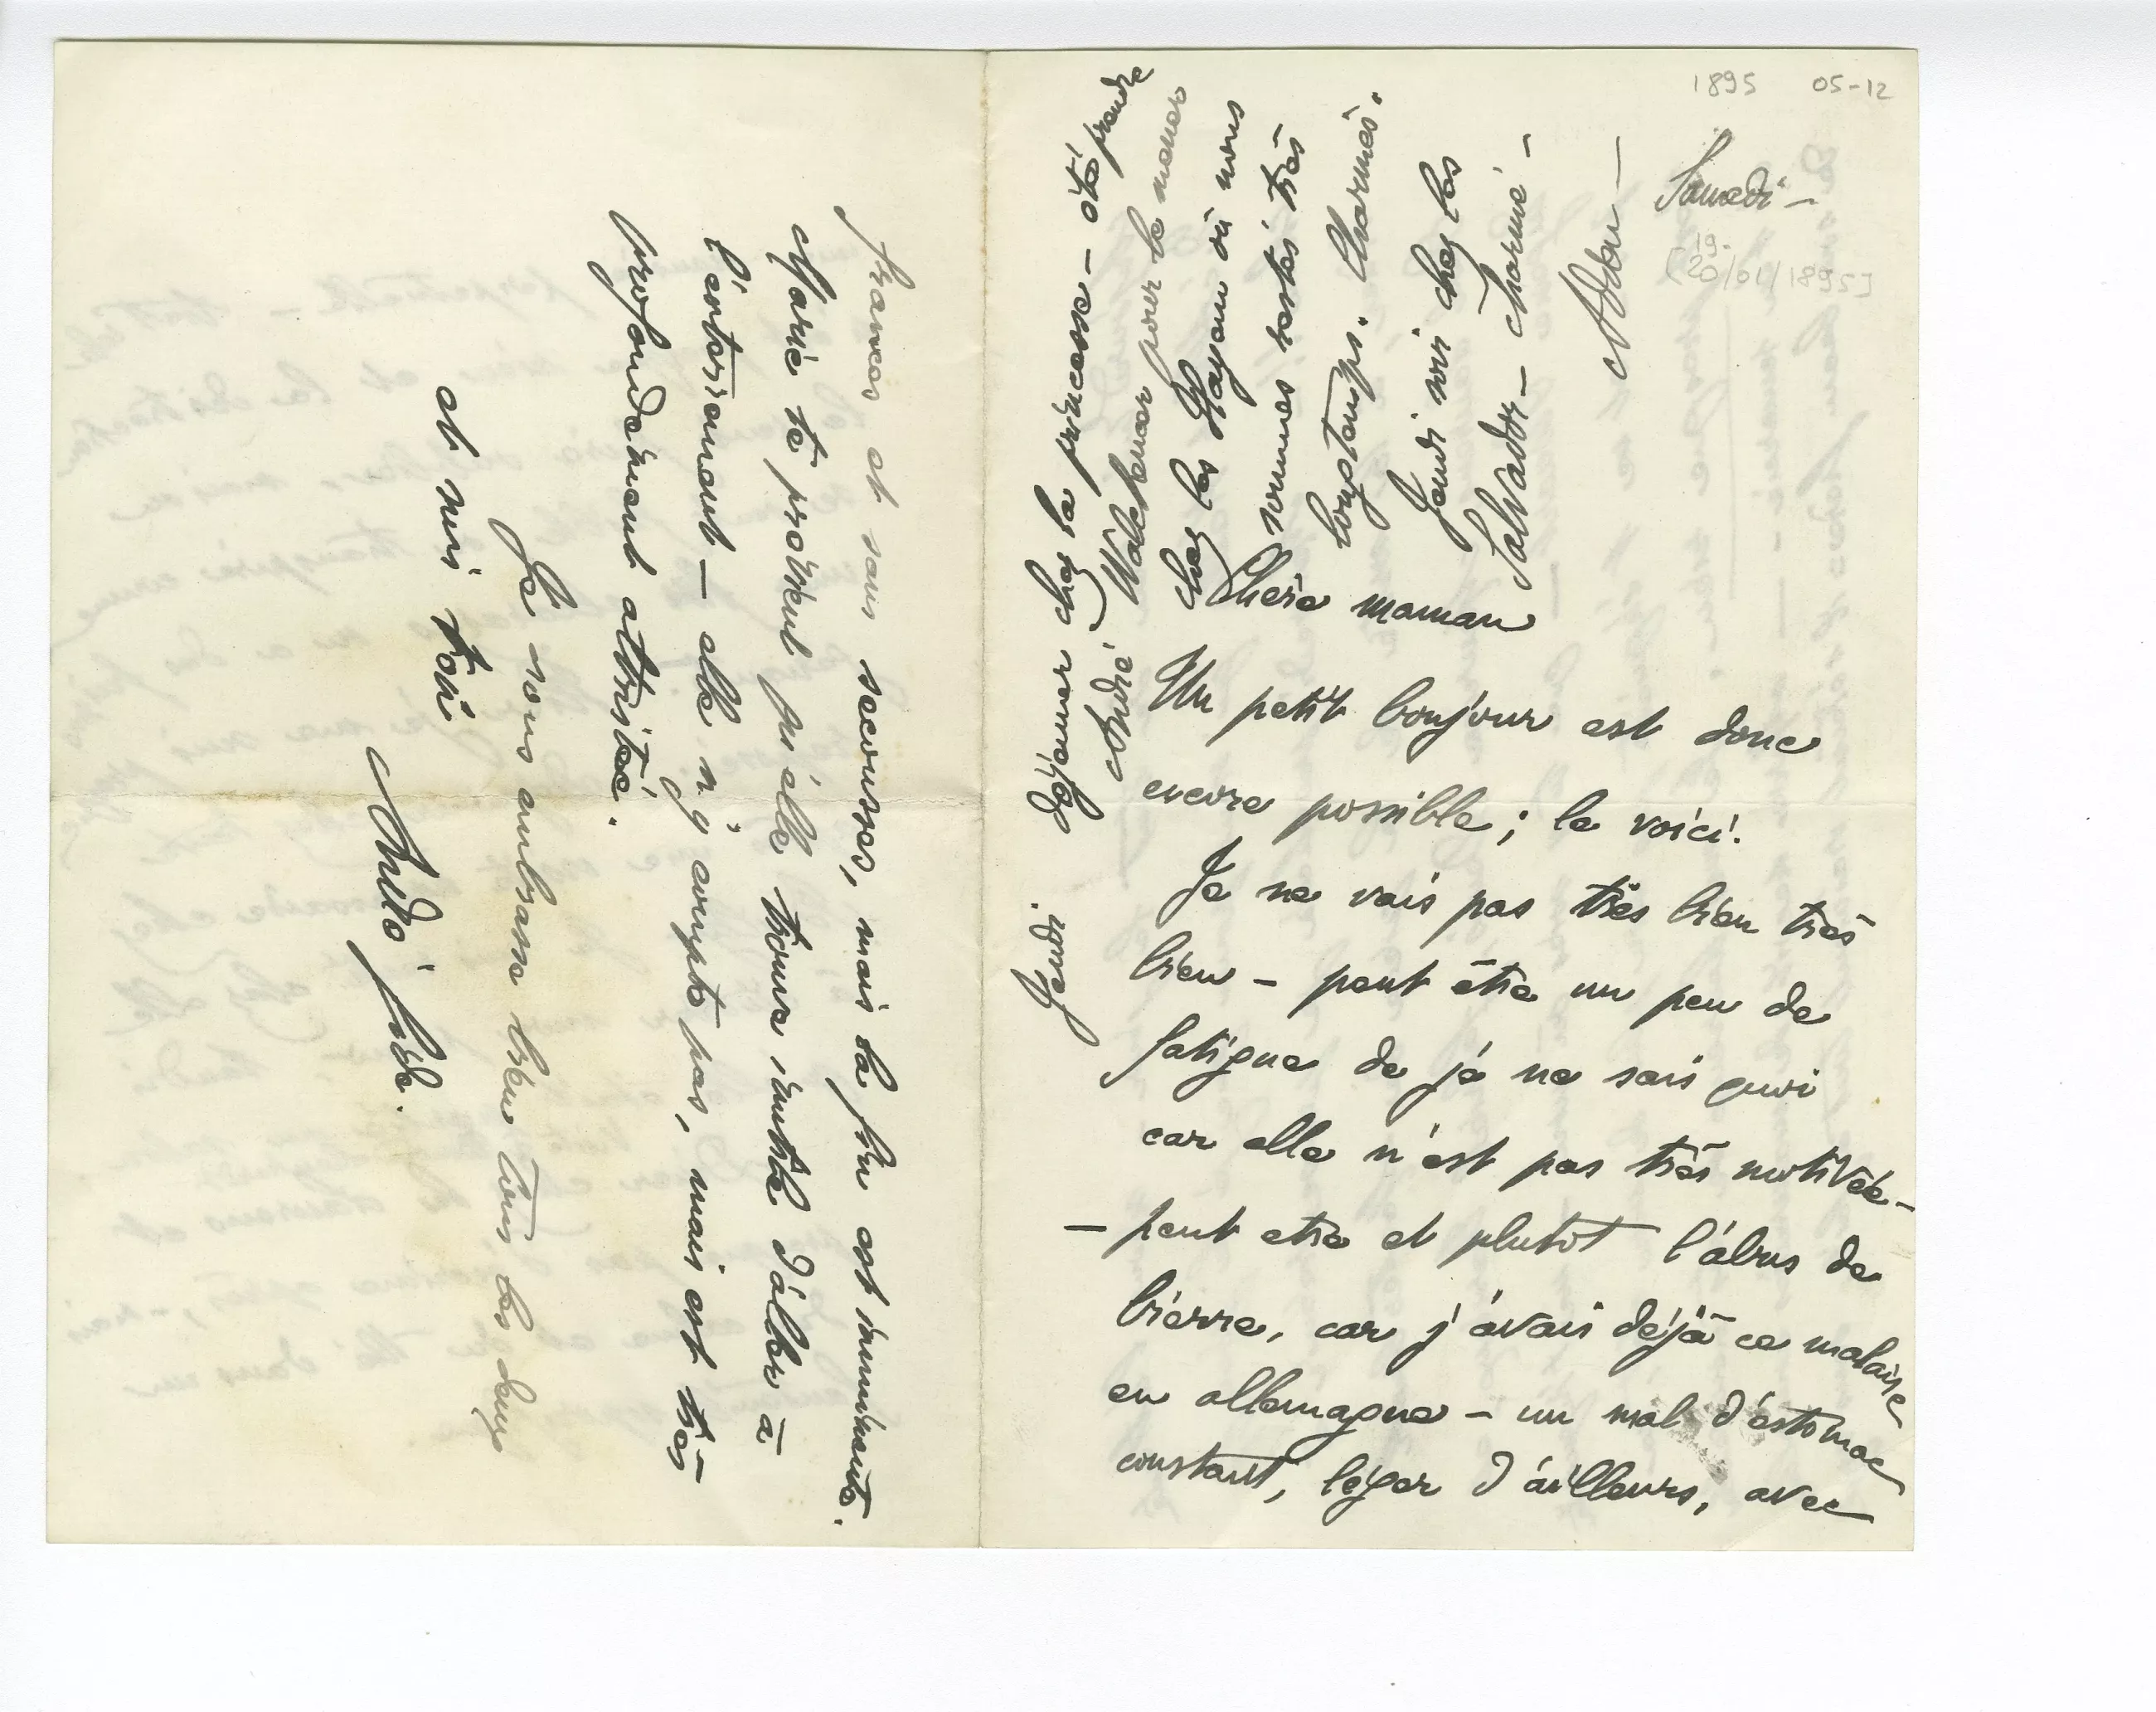 1895 05-12
Samedi –
[19.
20/01/1895]
Chère maman
Un petit bonjour est donc
encore possible ; le voici.
Je ne vais pas très bien très
bien – peut être un peu de
fatigue de je ne sais quoi
car elle n'est pas très motivée –
– peut etre et plutôt l'abus de
bierre, car j'avais déjà ce malaise
en allemagne – un mal d'estomac
constant, léger d'ailleurs, avec
Jeudi.
déjeuner chez la princesse – été prendre
André Walckenaer pour le mener
chez les où nous
sommes restés très
longtemps. Charmés.
Jeudi soir chez les
Salvador – charmé –
Adieu –
frances et sans secousses, mais la fin est imminente.
Marie te prévient qu'elle trouve inutile d'aller à
l'enterrement – elle n'y compte pas, mais est très
profondément attristée.
Je vous embrasse bien tous les deux
et suis ton
André Gide.